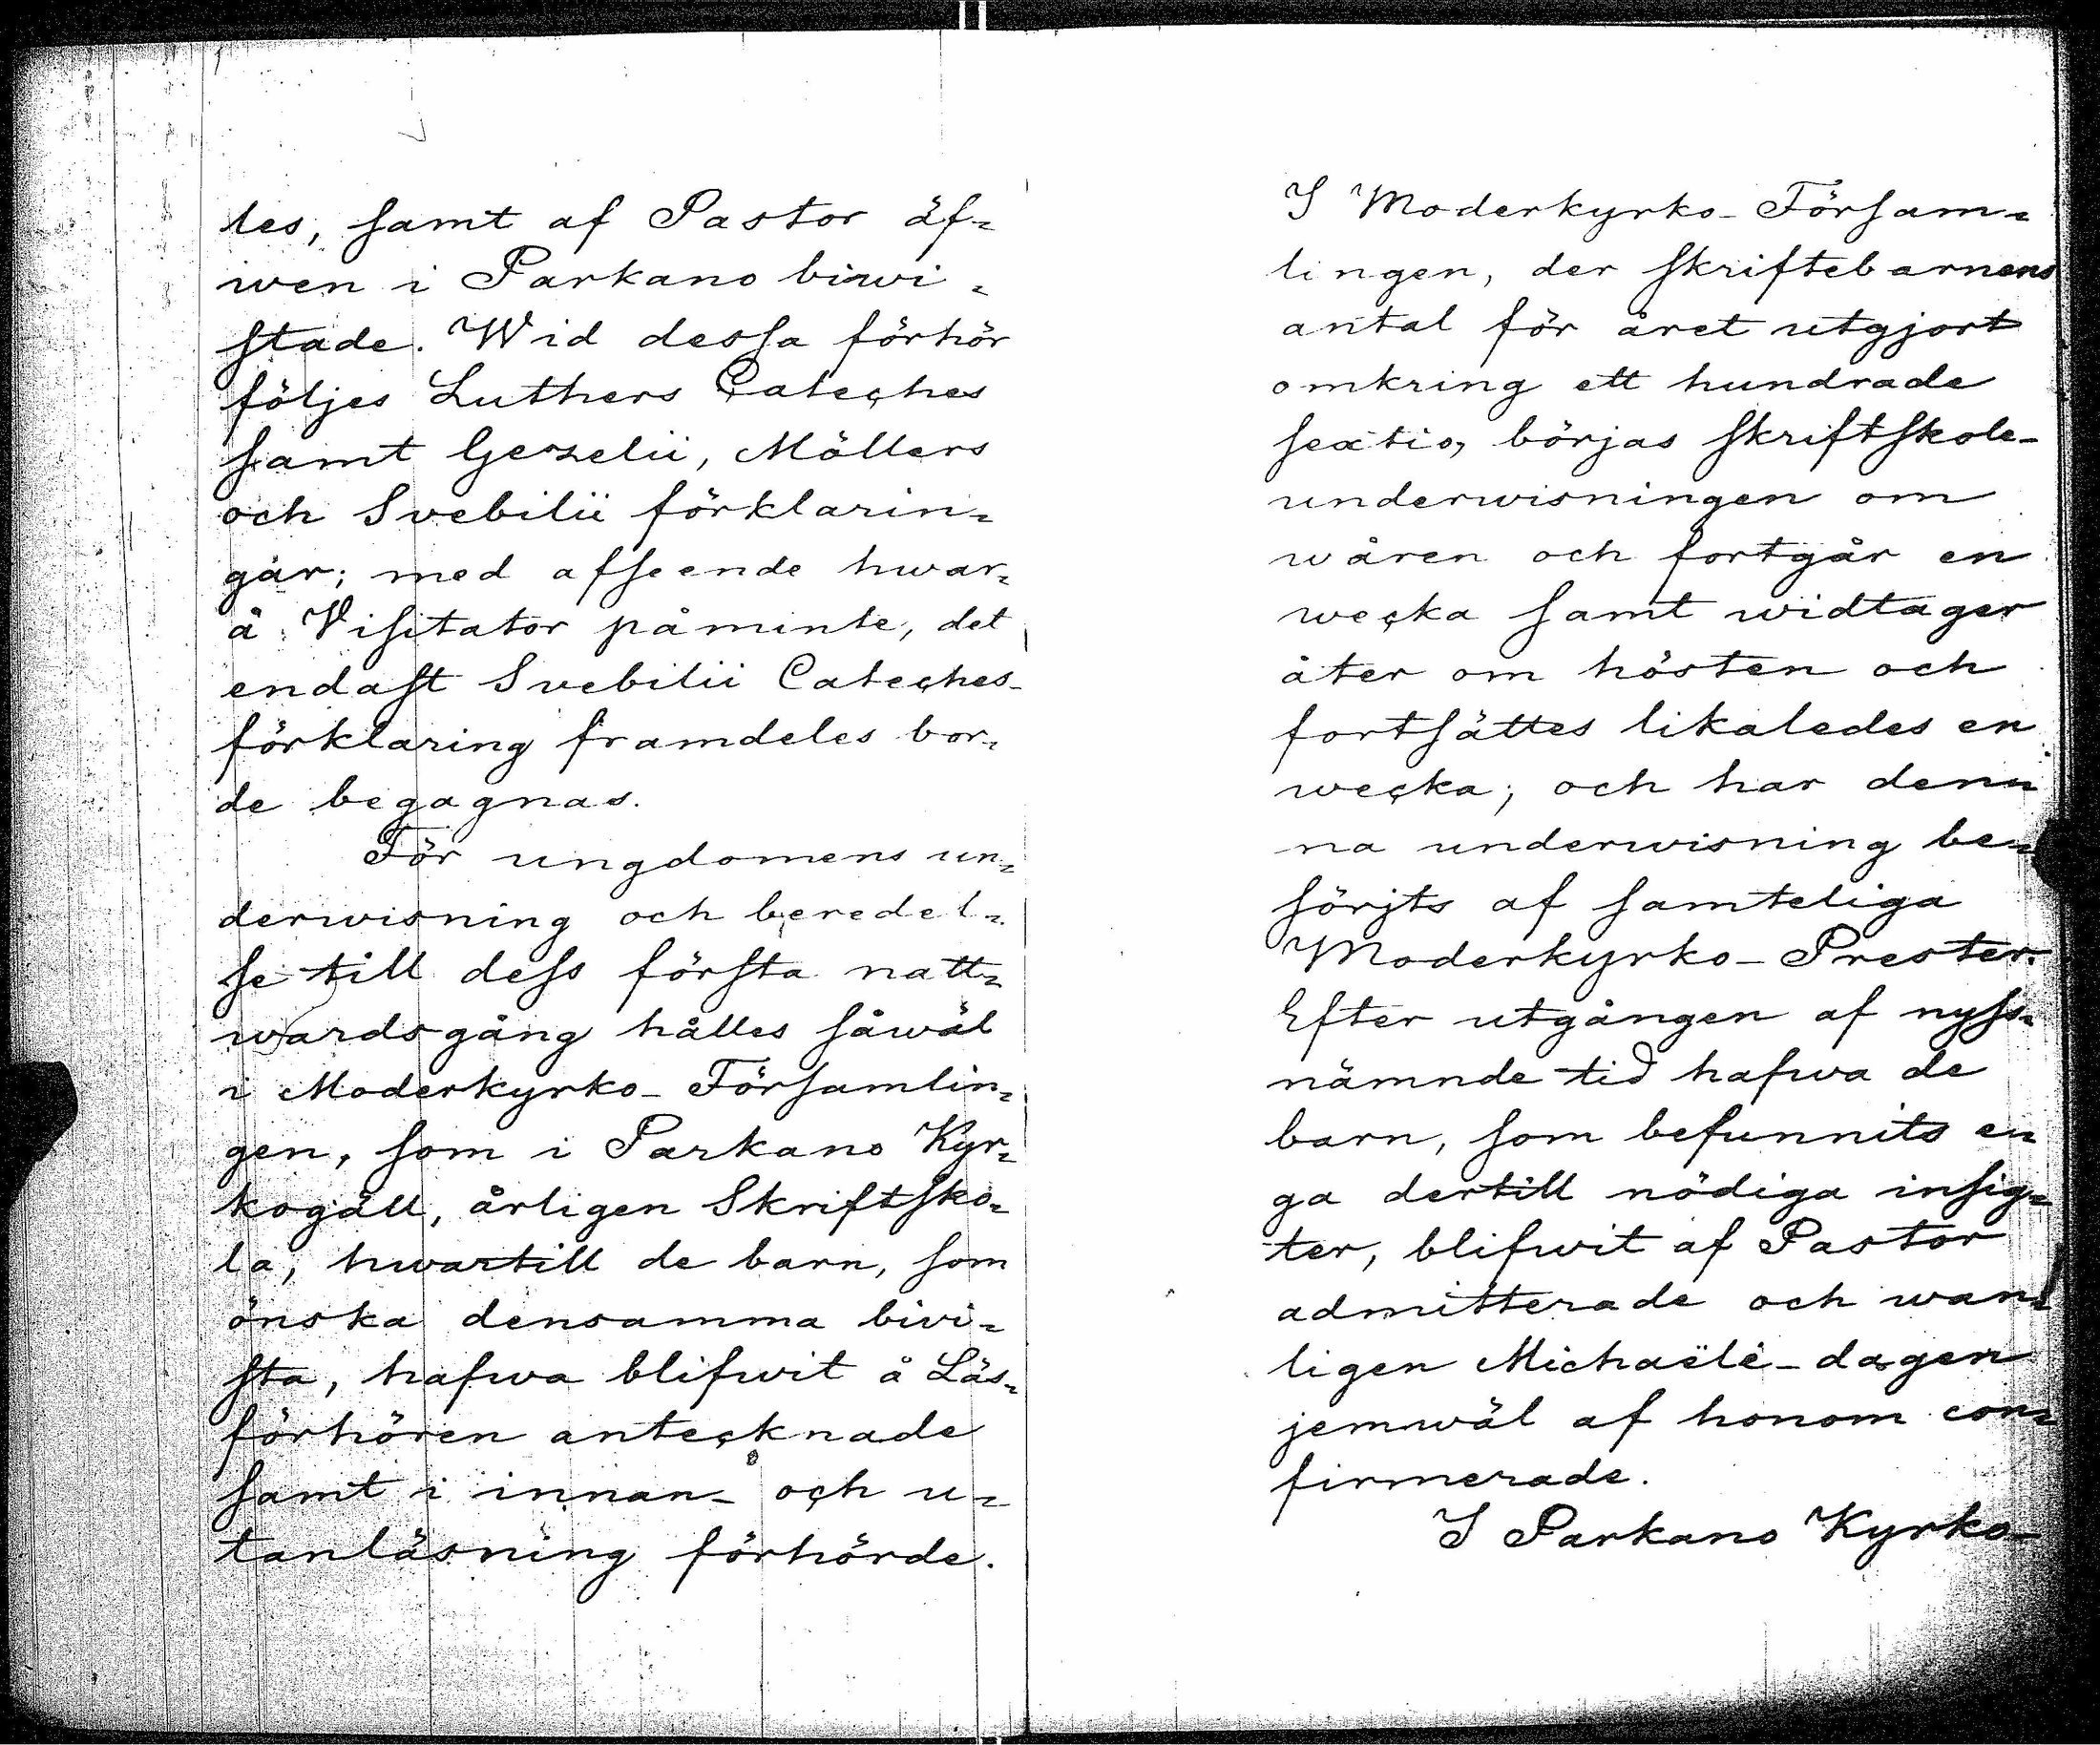 tes, samt af Pastor äf-
wen i Parkano biwi-
stade. Wid dessa förhör
följes Luthers Cateches
samt Gezelii, Möllers
och Svebilii förklarin-
gar; med afseende hwar-
å Visitator påminte, det
endast Svebilii Cateches-
förklaring framdeles bor-
de begagnas.
För ungdomens un-
derwisning och beredel-
se till dess första natt-
wardsgång hålles såwäl
i Moderkyrko-Församlin-
gen, som i Parkano Kyr-
kogäll, årligen Skriftsko-
la, hwartill de barn, som
önska densamma bivi-
sta, hafwa blifwit å Läs-
förhören antecknade
samt i innan- och u-
tanläsning förhörde.
I Moderkyrko-Försam-
lingen, der skriftebarnens
antal för året utgjort
omkring ett hundrade
sextio, börjas skriftskole-
underwisningen om
wåren och fortgår en
wecka samt widtager
åter om hösten och
fortsättes likaledes en
wecka; och har denn-
na underwisning be-
sörjts af samteliga
Moderkyrko-Prester.
Efter utgången af nyss-
nämnde tid hafwa de
barn, som befunnits e-
ga dertill nödiga insig-
ter, blifwit af Pastor
admitterade och wan-
ligen Michaëli-dagen
jemwäl af honom con-
firmerade.
I Parkano Kyrko-